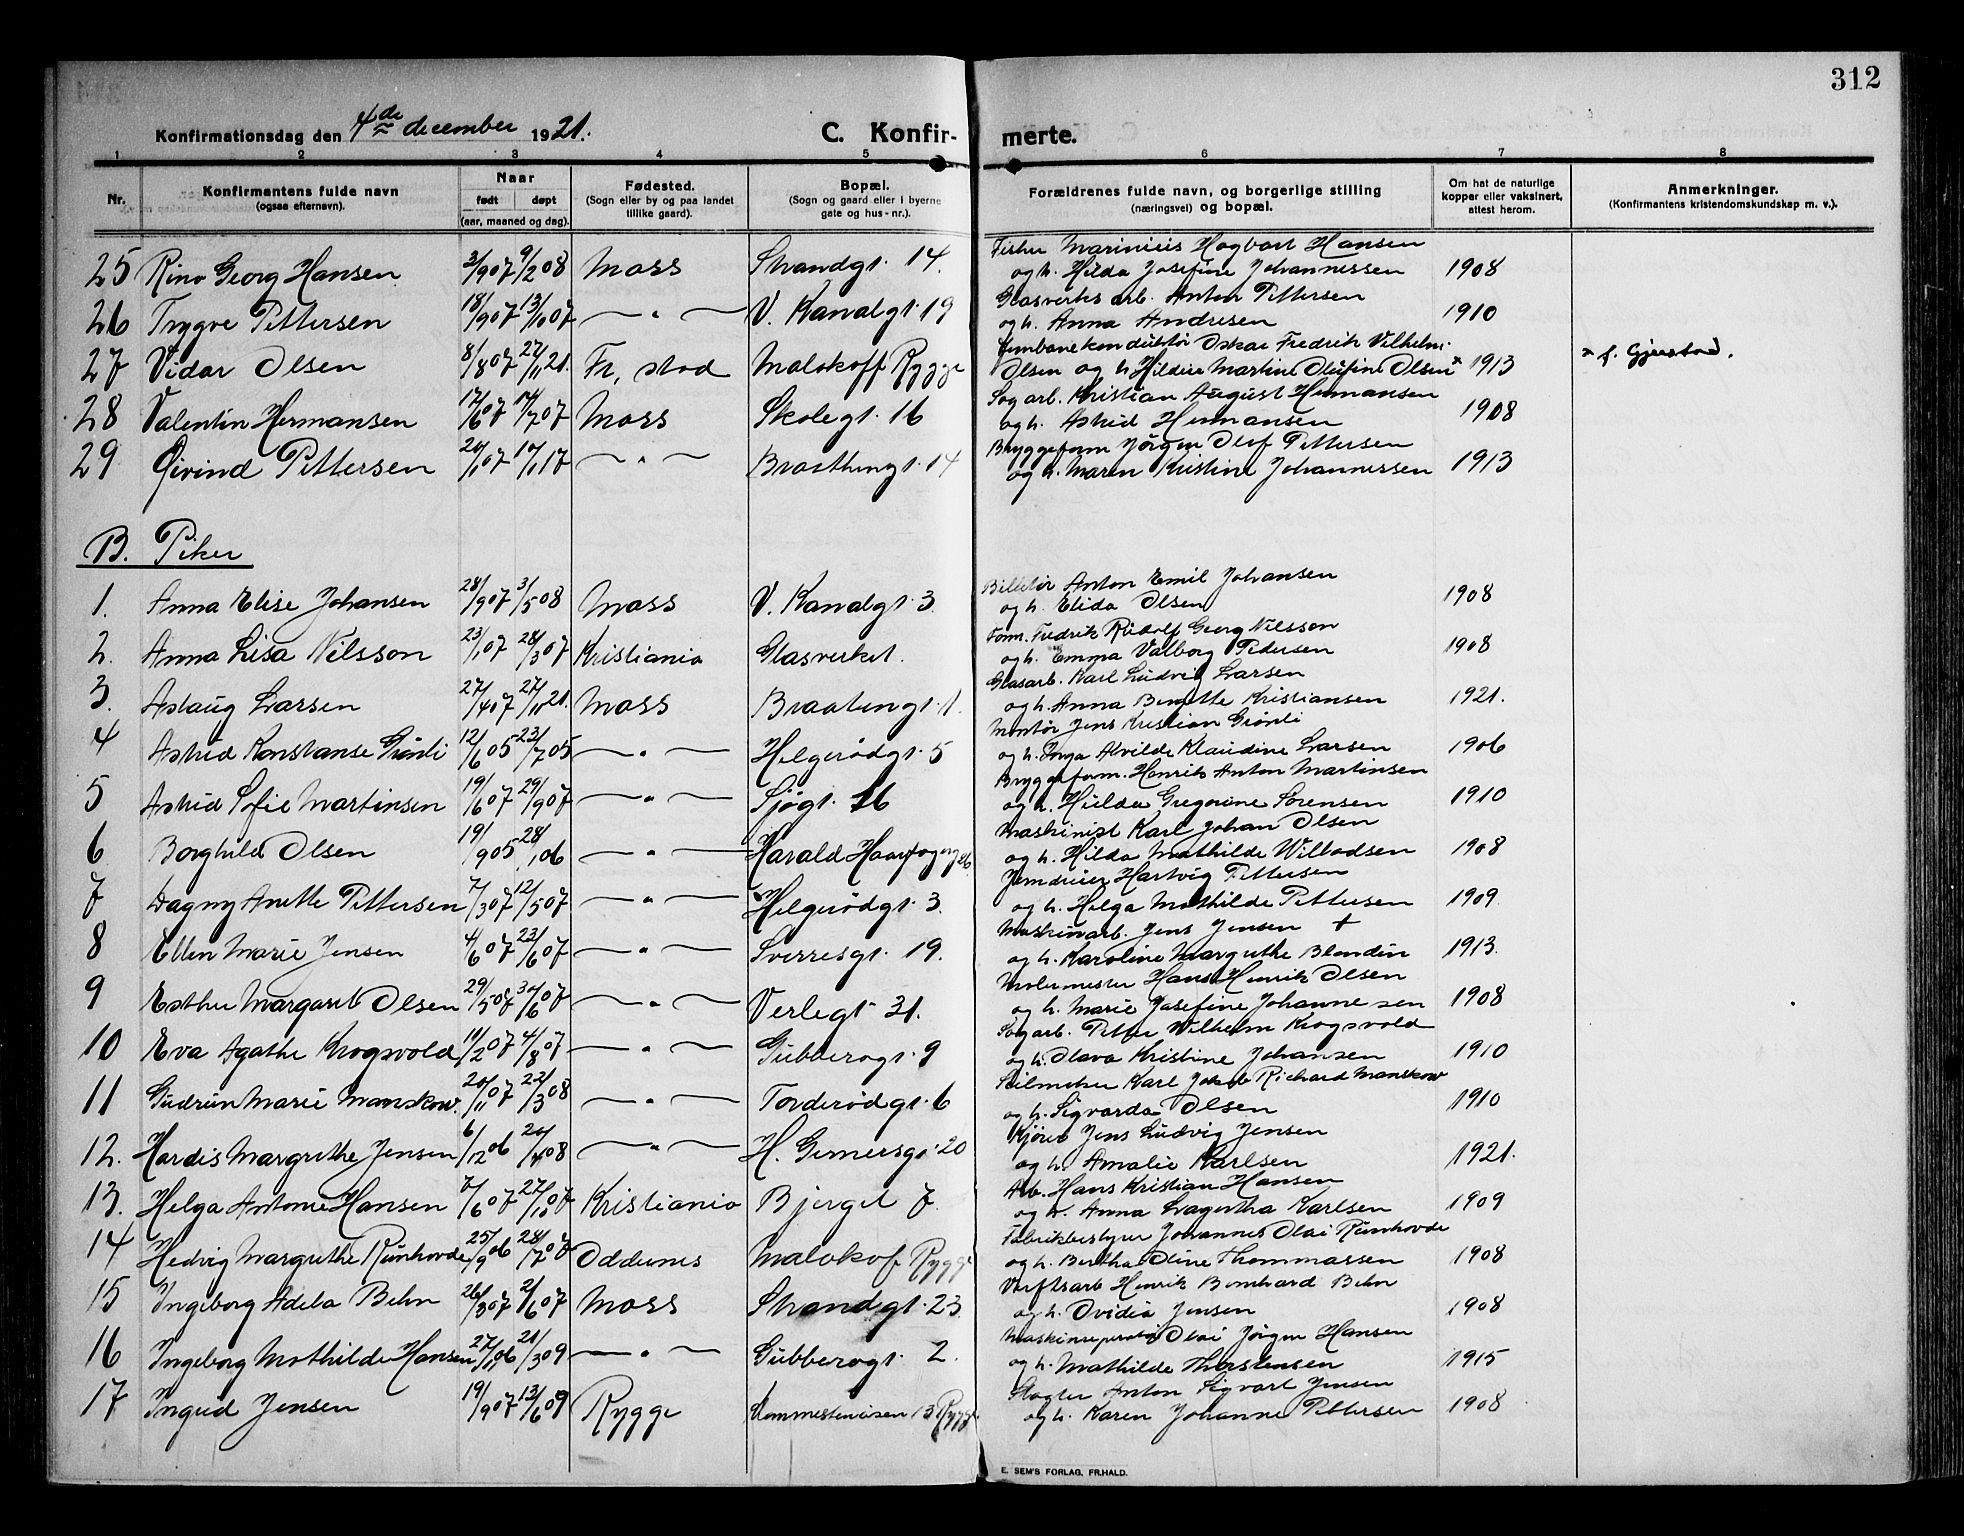 312
Konfirmationsdag den 4de december 1921.
C. Konfir- merte.
1 2 3 4 5 6 7 8
Nr. Konfirmantens fulde navn (ogsaa efternavn). Naar født døpt (aar, maaned og dag). Fødested. (Sogn eller by og paa landet tillike gaard). Bopæl. (Sogn og gaard eller i byerne gate og hus-nr.). Forældrenes fulde navn, og borgerlige stilling (næringsvei) og bopæl. Om hat de naturlige kopper eller vaksinert, attest herom. Anmerkninger. (Konfirmantens kristendomskundskap m. v.).
Fisker Marinius Hagbart Hansen
25 Rino Georg Hansen 3/9 07 9/2 08 Moss Strandgt. 14. og h. Hilda Josefine Johannessen 1908
Glasverks arb. Anton Pettersen
26 Trygve Pettersen 18/9 07 13/10 07 — " — V. Kanalgt. 19 og h. Anna Andresen 1910
Jernbanekonduktør Oskar Fredrik Vilhelm
27 Vidar Olsen 8/8 07 27/11 21. Fr. stad Malakoff Rygge Olsen og h. Hildur Martine Olufine Olsen x 1913 x f. Gjerstad.
Sagarb. Kristian August Hermansen
28 Valentin Hermansen 17/6 07 14/7 07 Moss Skolegt. 16 og h. Astrid Hermansen 1908
Bryggeform Jørgen Olaf Pettersen
29 Øivind Pettersen 20/1 07 10/1 17 — " — Braatengt. 14 og h. Maren Kristine Johannessen 1913
B. Piker
Billetør Anton Emil Johansen
1. Anna Elise Johansen 28/9 07 3/5 08 Moss V. Kanalgt. 3. og h. Elida Olsen 1908
Form. Fredrik Rudolf Georg Nilsson
2. Anna Lisa Nilsson 23/1 07 28/3 07 Kristiania Glasverket. og h. Emma Valborg Pedersen 1908
Glasarb. Karl Ludvig Larsen
3. Aslaug Larsen 27/4 07 27/11 21. Moss Braatengt. 1. og h. Anna Benette Kristiansen 1921.
Montør Jens Kristian Grönli
4 Astrid Konstanse Grönli 12/6 05 23/7 05 — " — Helgerödgt. 5 og h. Inga Alvilde Klaudine Larsen 1906
Bryggeform. Henrik Anton Martinsen
5 Astrid Sofie Martinsen 19/6 07 29/9 07 — " — Sjøgt. 16 og h. Hulda Gregorine Sörensen 1910
Maskinist Karl Johan Olsen
6 Borghild Olsen 19/9 05 28/1 06 — " — Harald Haarfagresg. og h. Hilda Mathilde Willadsen 1908
Jerndreier Hartvig Pettersen
7 Dagny Anette Pettersen 7/3 07 12/5 07 — " — Helgerödgt. 3. og h. Helga Mathilde Pettersen 1909.
Maskinarb. Jens Jensen +
8 Ellen Marie Jensen 4/6 07 23/6 07 — " — Sverresgt. 19. og h. Karoline Margrethe Blondin 1913.
Molermester Hans Henrik Olsen
9 Esther Margaret Olsen 29/5 07 30/6 07 — " — Verlegt. 31. og h. Marie Josefine Johannesen 1908
Sagarb. Petter Wilhelm Krogsvold
10 Eva Agathe Krogsvold 11/2 07 4/8 07 — " — Gubberogt. 9 og h. Olava Kristine Johansen 1910
Seilmaker Karl Jakob Richard Manskow
11 Gudrun Marie Manskow. 20/11 07 22/3 08 — " — Torderödgt. 6 og h. Sigvarda Olsen 1910
Kjører Jens Ludvig Jensen
12. Hardis Margrethe Jensen 6/12 06 20/4 08 — " — H. Gernersgt. 20 og h. Amalie Karlsen 1921.
Arb. Hans Kristian Hansen
13. Helga Antonie Hansen 7/6 07 27/10 07 Kristiania Bjerget 7. og h. Anna Lagertha Karlsen 1909
Fabrikbestyrer Johannes Olai Runhovde
14 Hedvig Margrethe Runhovde 25/9 06 28/7 07 Oddernes Malakof Rygge og h. Bertha Oline Thommassen 1908
Verftsarb Henrik Bernhard Behn
15 Ingeborg Adela Behn 26/3 07 2/6 07 Moss Strandgt. 23. og h. Ovidia Jensen 1908
Maskinreparatør Olai Jörgen Hansen
16 Ingeborg Mathilde Hansen 27/11 06 21/3 09 — " — Gubberogt. 2. og h. Mathilde Thorstensen 1915
Slagter Anton Sigvart Jensen
17 Ingrid Jensen 19/9 07 13/6 09 Rygge 13 Rygge og h. Karen Johanne Pettersen 1908
E. SEM'S FORLAG, FR.HALD.